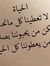 الحياة
لا تعطينا كل مانحب
لكن من يحبوننا بصدق
من يعطوننا كل الحياة